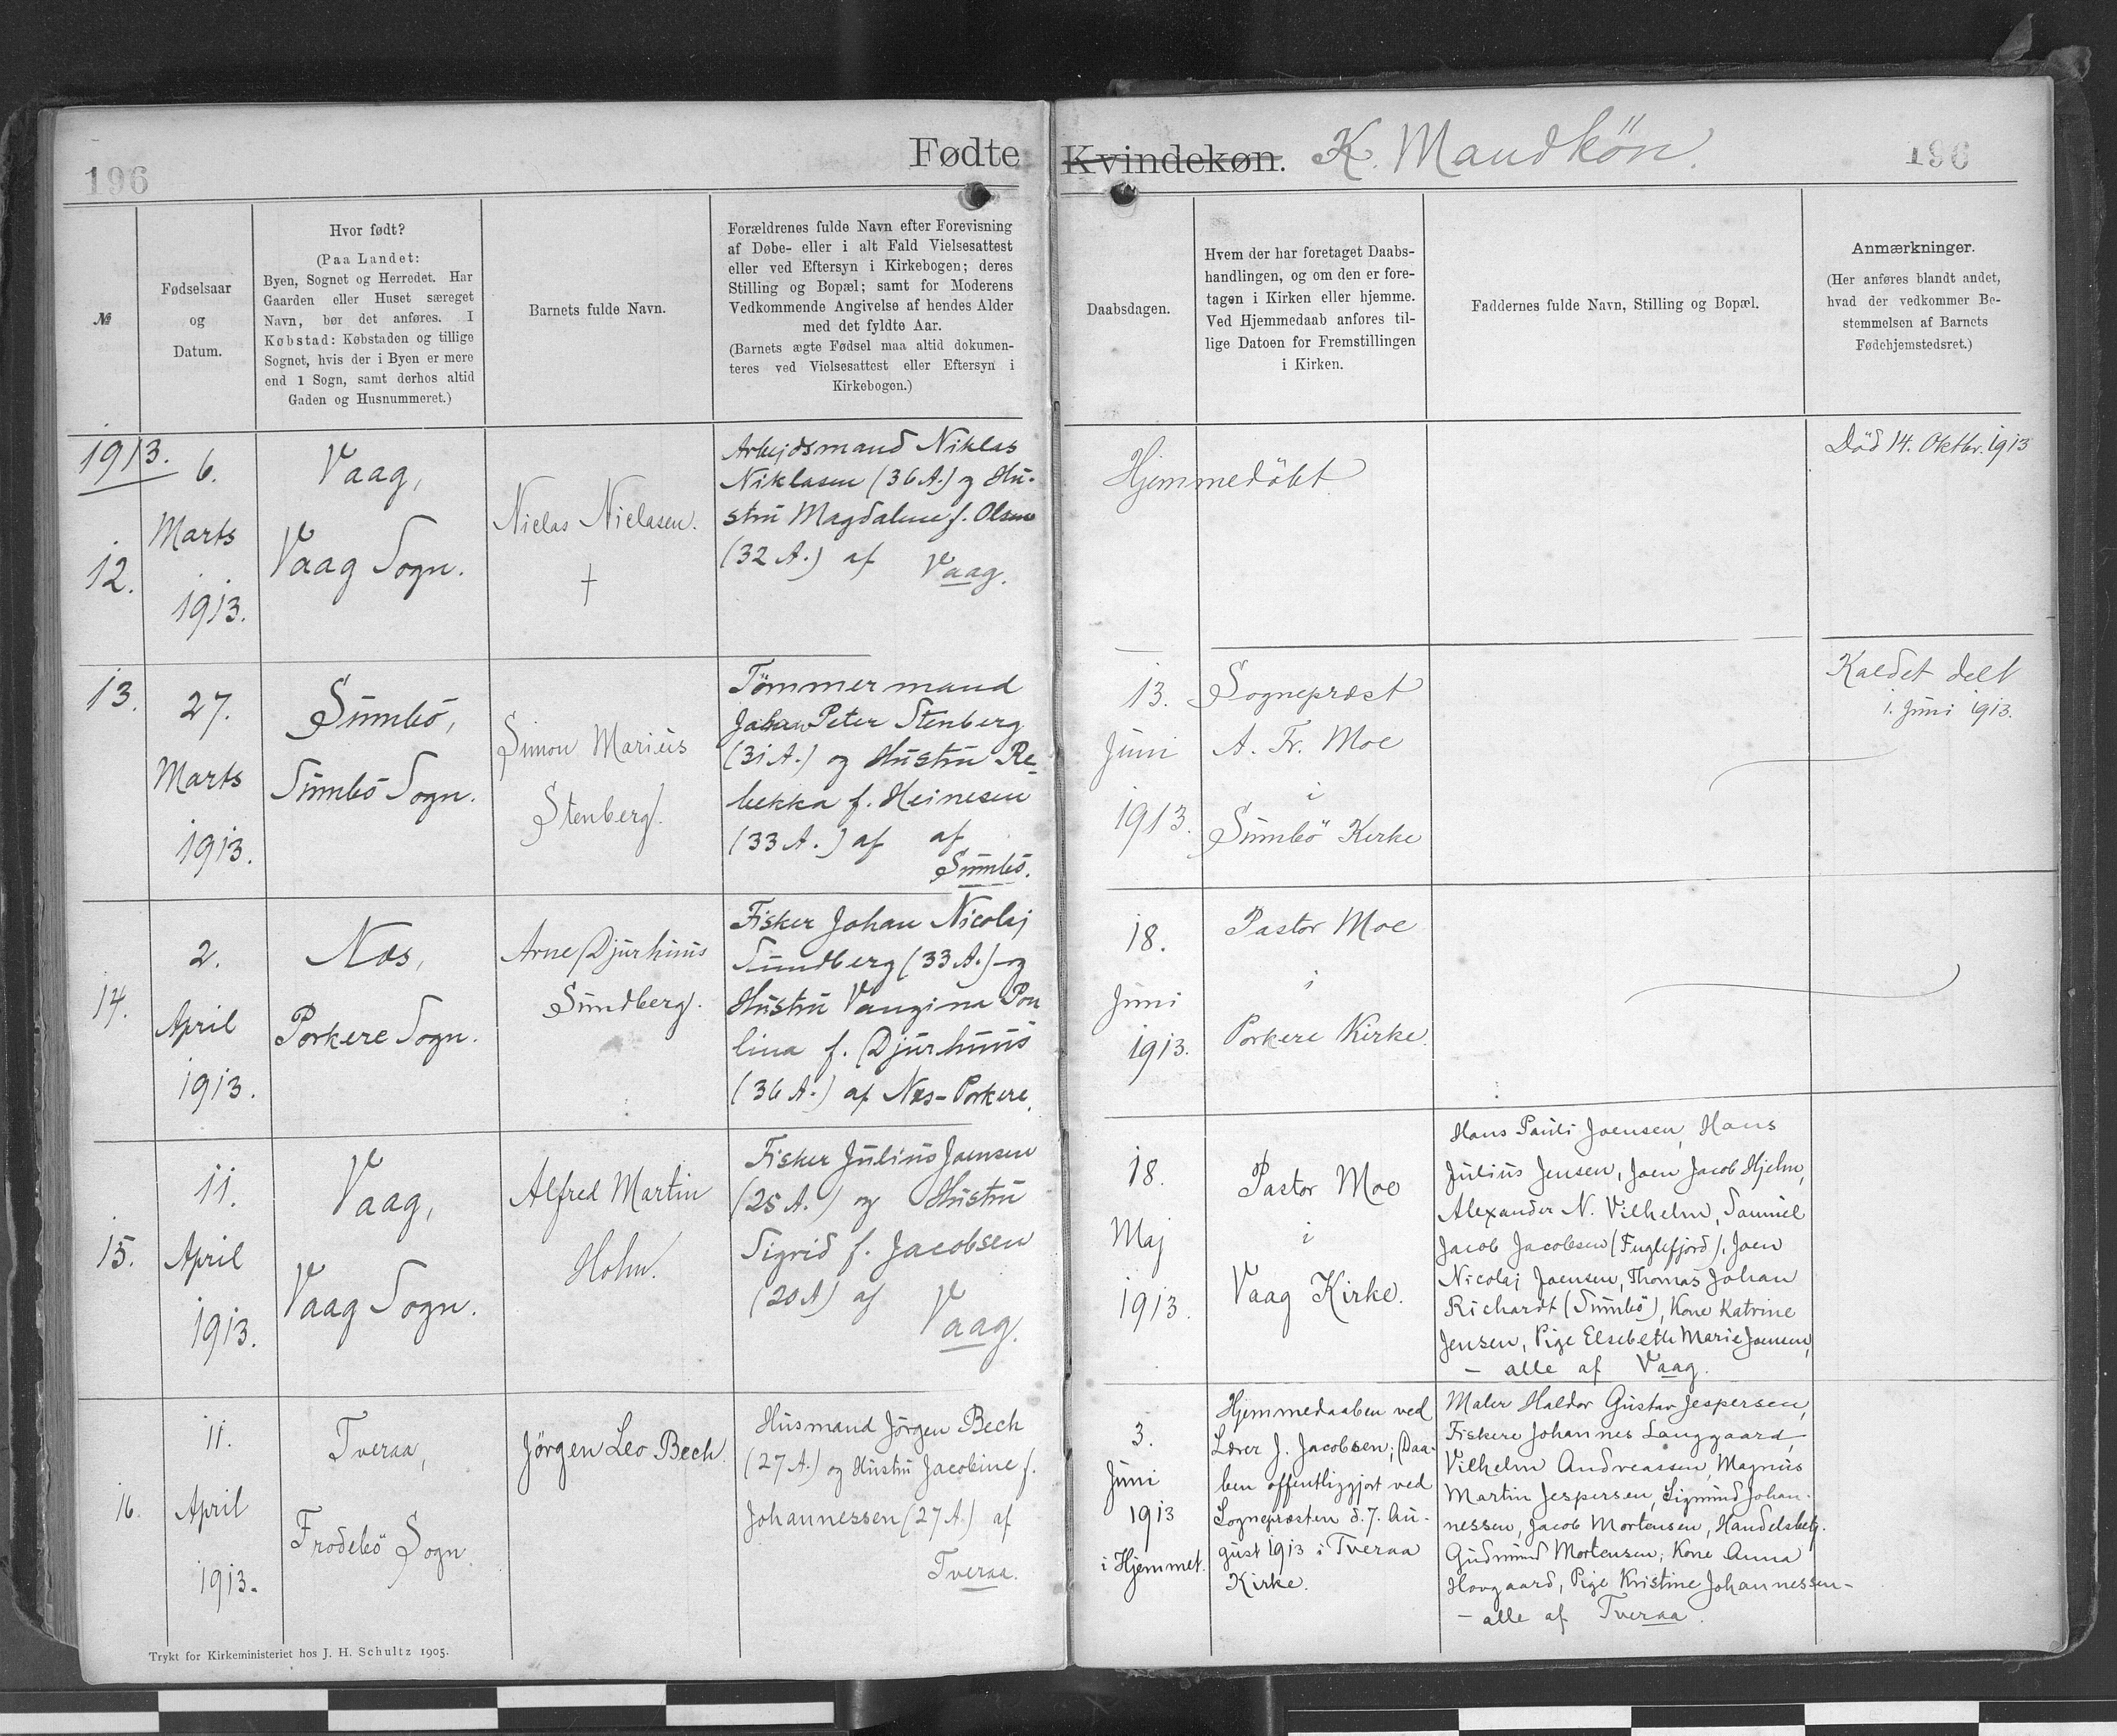 196
Fødte Kvindekøn. K. Mandkön.
196
№
Fødselsaar
og
Datum.
Hvor født?
(Paa Landet:
Byen, Sognet og Herredet. Har
Gaarden eller Huset særeget
Navn, bør det anføres. I
Købstad: Købstaden og tillige
Sognet, hvis der i Byen er mere
end 1 Sogn, samt derhos altid
Gaden og Husnummeret.)
Barnets fulde Navn.
Forældrenes fulde Navn efter Forevisning
af Døbe- eller i alt Fald Vielsesattest
eller ved Eftersyn i Kirkebogen; deres
Stilling og Bopæl; samt for Moderens
Vedkommende Angivelse af hendes Alder
med det fyldte Aar.
(Barnets ægte Fødsel maa altid dokumen-
teres ved Vielsesattest eller Eftersyn i
Kirkebogen.)
Daabsdagen.
Hvem der har foretaget Daabs-
handlingen, og om den er fore-
tagen i Kirken eller hjemme.
Ved Hjemmedaab anføres til-
lige Datoen for Fremstillingen
i Kirken.
Faddernes fulde Navn, Stilling og Bopæl.
Anmærkninger.
(Her anføres blandt andet,
hvad der vedkommer Be-
stemmelsen af Barnets
Fødehjemstedsret.)
1913.
12.
6.
Marts
1913.
Vaag,
Vaag Sogn.
Niclas Niclasen.
†
Arbejdsmand Niklas
Niklasen (36 A.) og Hu-
stru Magdalene f. Olsen
(32 A.) af Vaag.
Hjemmedöbt
Död 14. Oktbr. 1913
13.
27.
Marts
1913.
Sumbö,
Sumbö Sogn.
Simon Marius
Stenberg.
Tömmermand
Johan Peter Stenberg
(31 A.) og Hustru Re-
bekka f. Heinesen
(33 A.) af af
Sumbö.
13.
Juni
1913.
Sognepræst
A. Fr. Moe
i
Sumbö Kirke
Kaldet delt
1. Juni 1913.
14.
2.
April
1913.
Næs,
Porkere Sogn.
Arne Djurhuus
Sundberg.
Fisker Johan Nicolaj
Sundberg (33 A.) og
Hustru Vangina Pou
lina f. Djurhuus
(36 A.) af Næs-Porkere.
18.
Juni
1913.
Pastor Moe
i
Porkere Kirke.
15.
11.
April
1913.
Vaag,
Vaag Sogn.
Alfred Martin
Holm.
Fisker Julius Joensen
(25 A.) og Hustru
Sigrid f. Jacobsen
(20 A) af Vaag.
18.
Maj
1913.
Pastor Moe
i
Vaag Kirke.
Hans Pauli Joensen, Hans
Julius Jensen, Joen Jacob Hjelm,
Alexander N. Vilhelm, Samuel
Jacob Jacobsen (Fuglefjord), Joen
Nicolaj Joensen, Thomas Johan
Richardt (Sumbö), Kone Katrine
Jensen, Pige Elsebeth Marie Joensen,
– alle af Vaag.
16.
11.
April
1913.
Tveraa,
Frodebö Sogn.
Jörgen Leo Bech.
Husmand Jörgen Bech
(27 A.) og Hustru Jacobine f.
Johannessen (27 A.) af
Tveraa.
3.
Juni
1913
i Hjemmet.
Hjemmedaaben ved
Lærer J. Jacobsen; Daa-
ben offentliggjort ved
Sognepræsten d. 7. Au-
gust 1913 i Tveraa
Kirke.
Maler Haldor Gustav Jespersen,
Fiskere Johannes Langgaard,
Vilhelm Andreassen, Magnus
Martin Jespersen, Sigmund Johan-
nessen, Jacob Mortensen, Handelsbetj.
Gudmund Mortensen; Kone Anna
Hovgaard, Pige Kristine Johannessen –
– alle af Tveraa.
Trykt for Kirkeministeriet hos J. H. Schultz 1905.